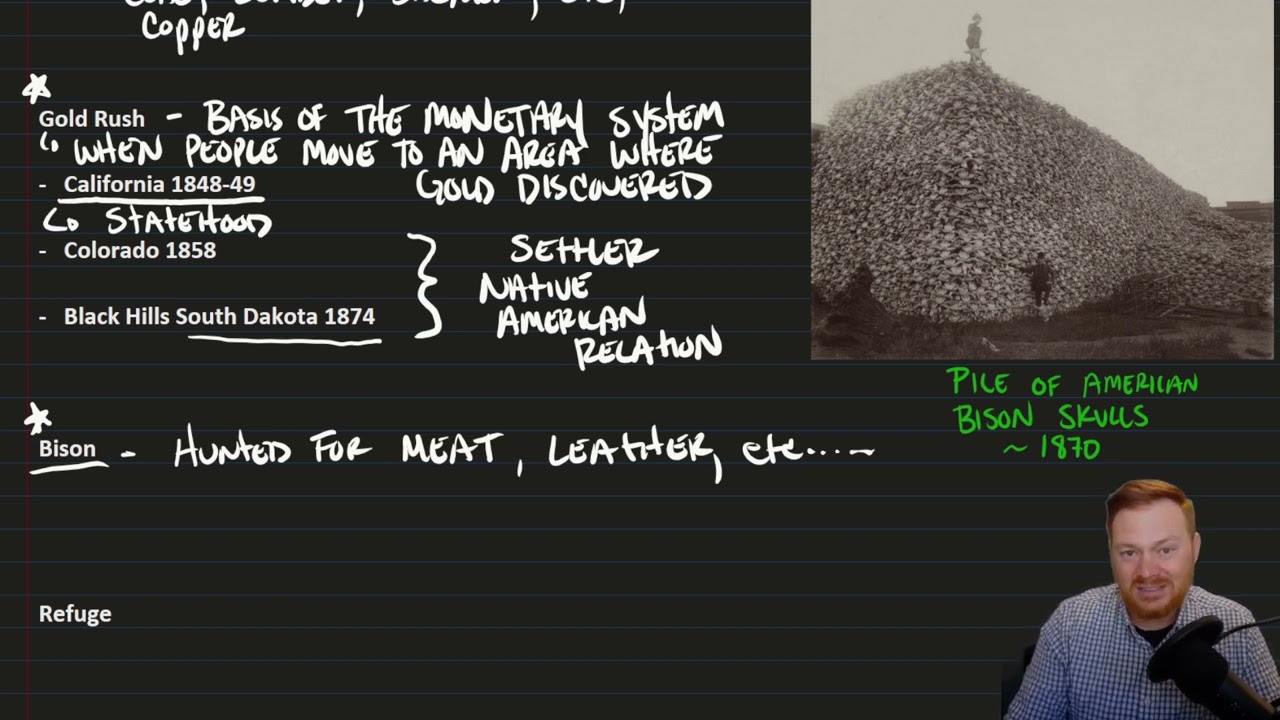 Copper
Gold Rush - BASIS OF THE MONETARY SYSTEM
↳ WHEN PEOPLE MOVE TO AN AREA WHERE
- California 1848-49 GOLD DISCOVERED
↳ STATEHOOD
- Colorado 1858
SETTLER
NATIVE
- Black Hills South Dakota 1874 AMERICAN
RELATION
PILE OF AMERICAN
BISON SKULLS
~ 1870
Bison - HUNTED FOR MEAT, LEATHER, etc.....
Refuge